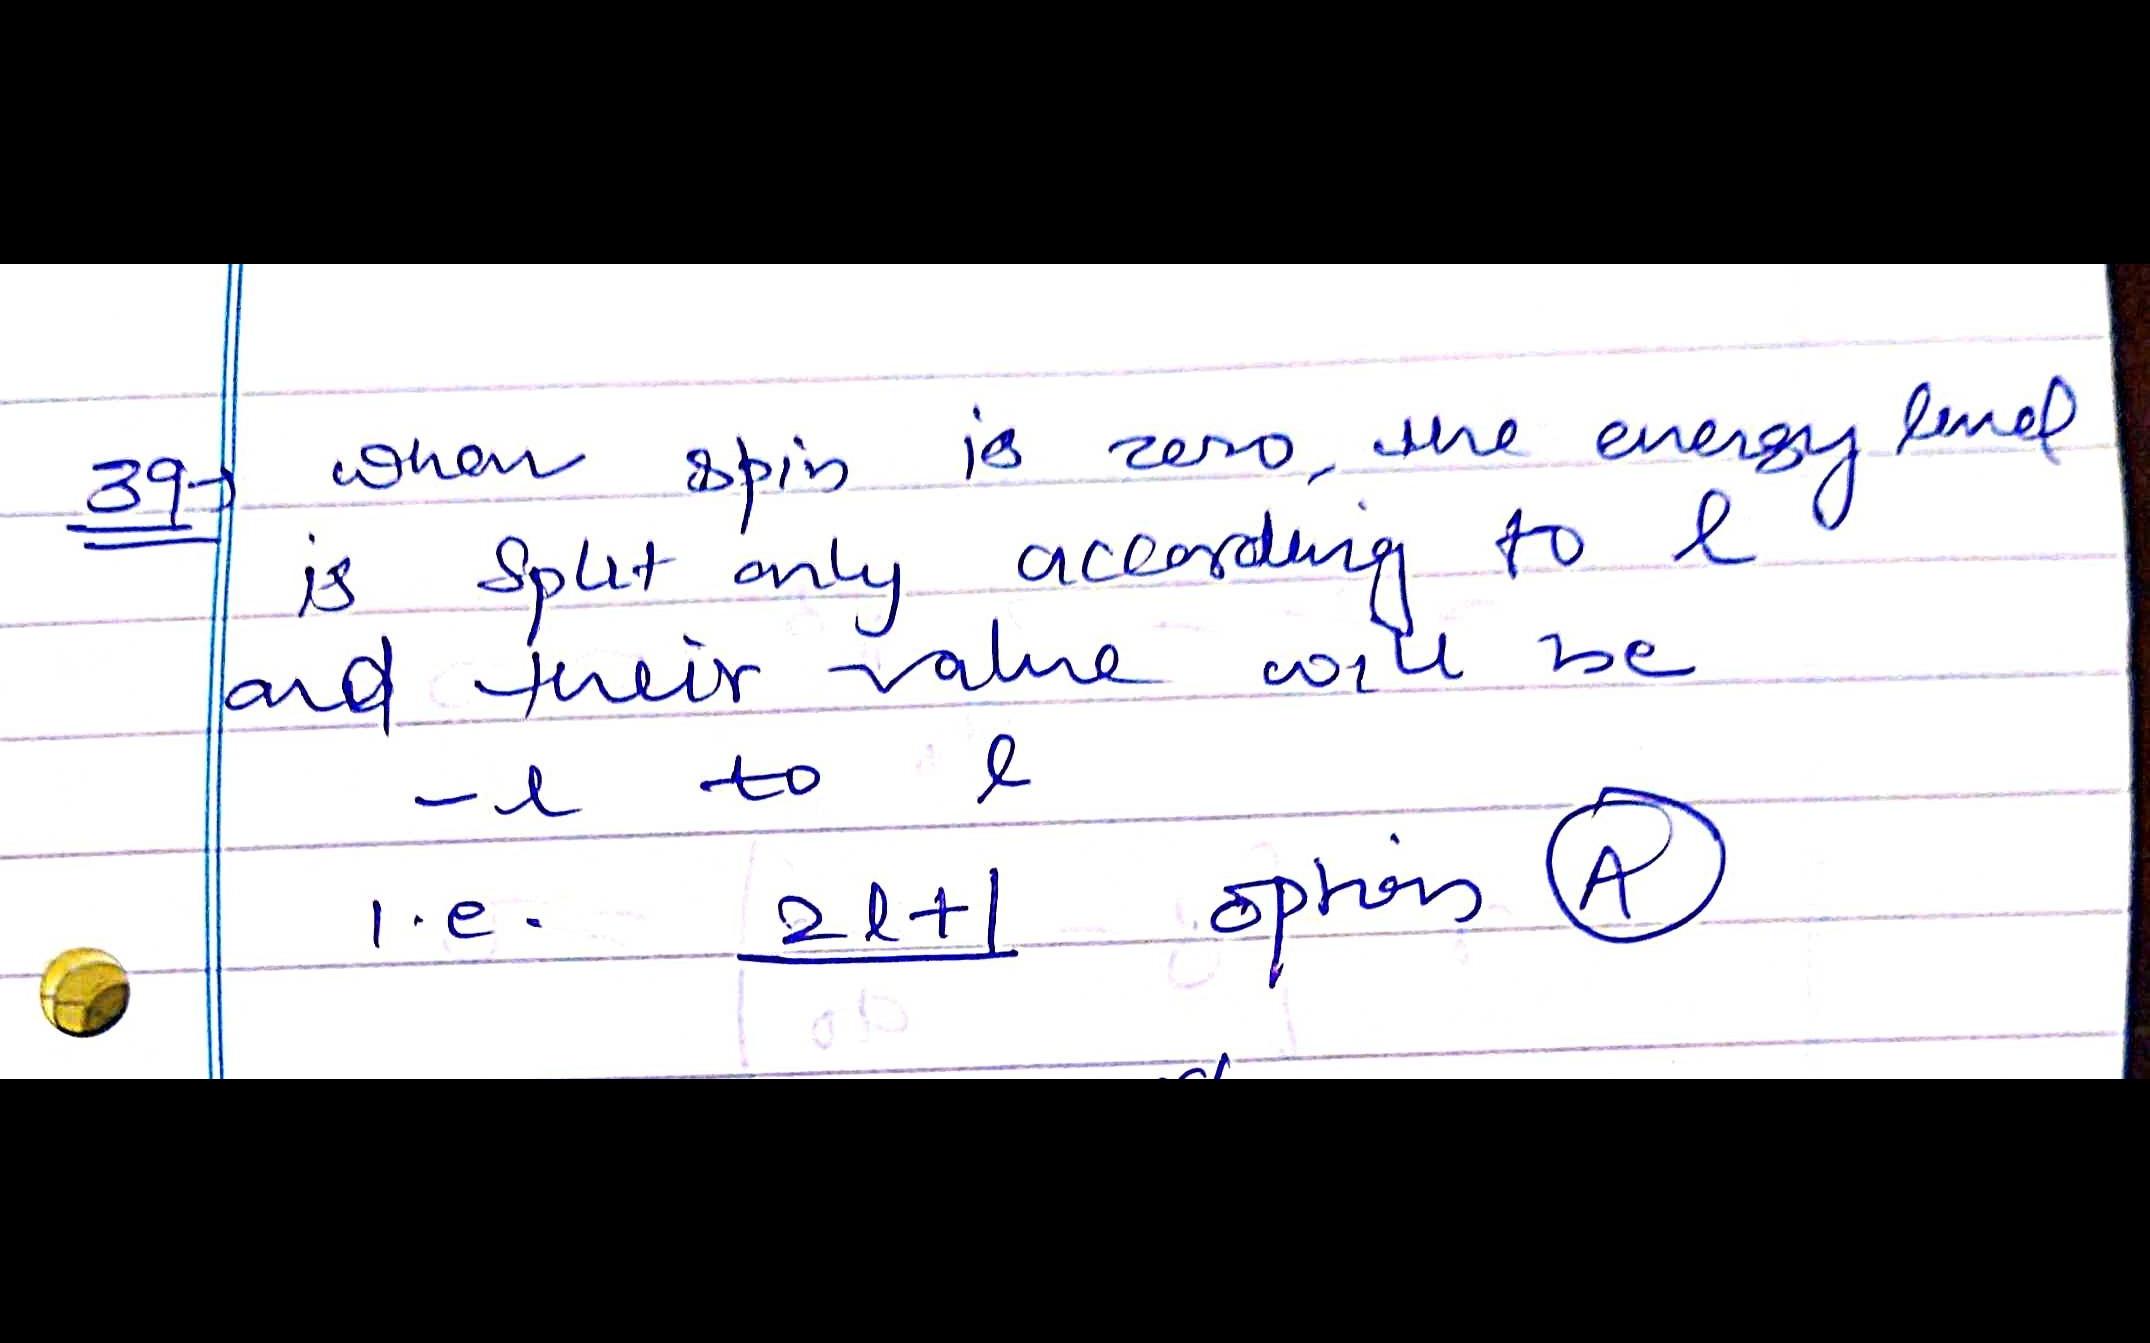 39→ when spin is zero, the energy level
is split only according to l
and their value will be
- l to l
i.e. 2l+1 option A